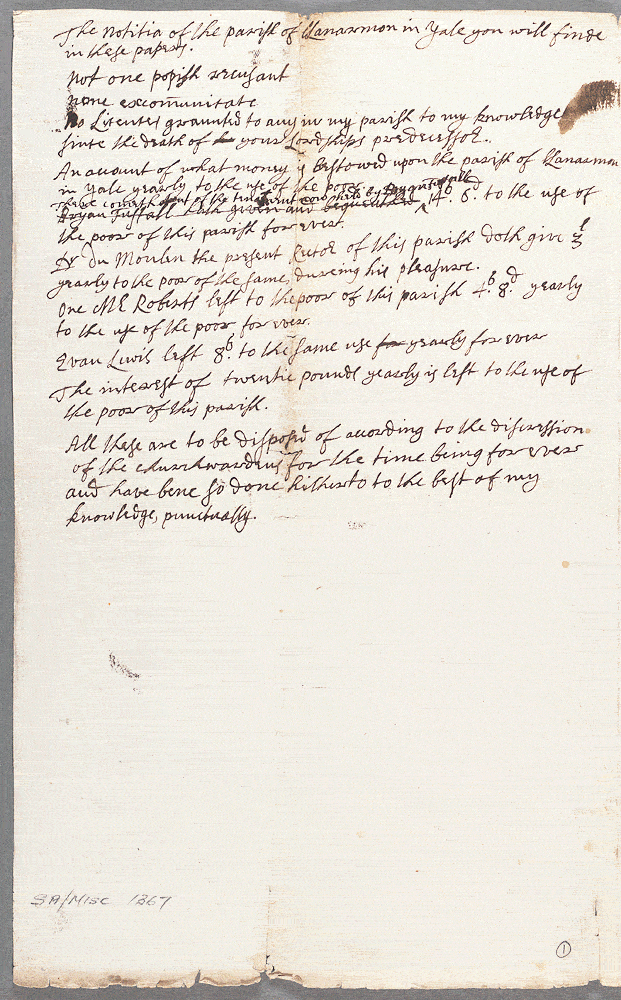 The notitia of the parish of Llanarmon in Yale you will finde
in these papers.
Not one popish recusant
none excommunicate
No Licences graunted to any in my parish to my knowledge
since the death of your Lordships predecessor.
An account of what money is bestowed upon the parish of Llanarmon
in Yale yearly to the use of the poore
There cometh out of the
14s 6d to the use of
the poor of this parish for ever.
Dr Du Moulen the present Rector of this parish doth give 3l
yearly to the poor of the same, dureing his pleasure.
One Mr Roberts left to the poor of this parish 4s 8d yearly
to the use of the poor for ever.
Evan Lewis left 8s to the same use for yearly for ever
The interest of twentie pounds yearly is left to the use of
the poor of this parish.
All these are to be disposed of acording to the discression
of the churchwardens for the time being for ever
and have bene so done hitherto to the best of my
knowledge, punctually.
SA/MISC 1367
1